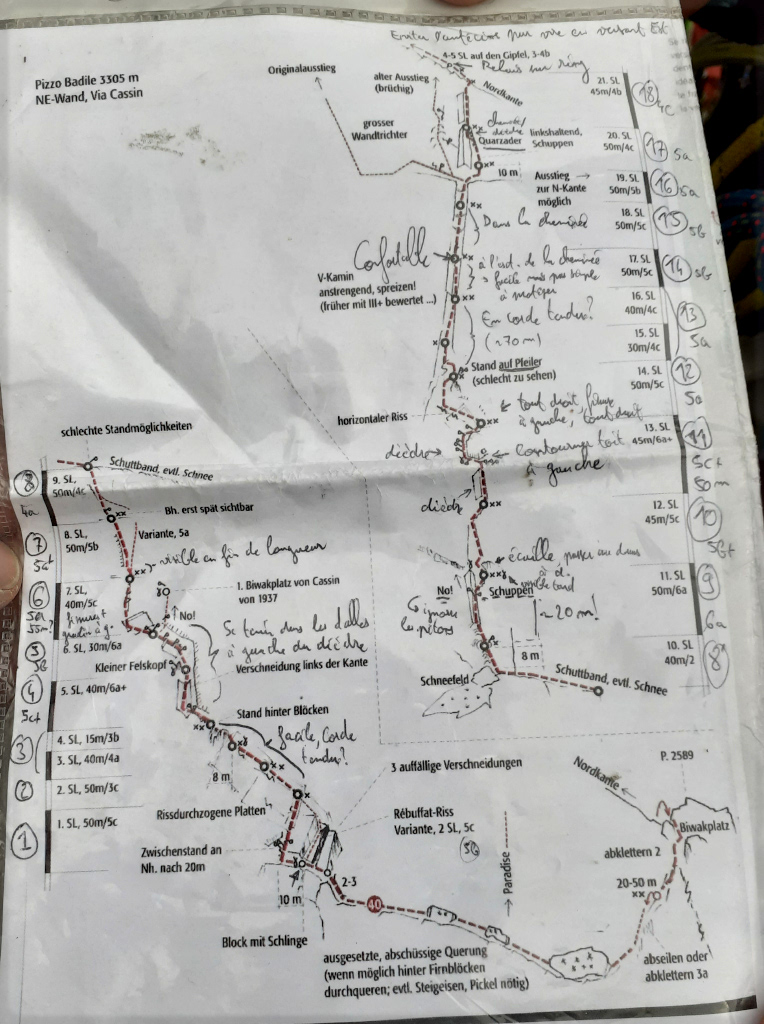 4-5 SL auf den Gipfel, 3-4b
Relais sur ring
Pizzo Badile 3305 m
NE-Wand, Via Cassin
Originalausstieg
alter Ausstieg
(brüchig)
Nordkante
grosser
Wandtrichter
Quarzader
linkshaltend,
Schuppen
10 m
Ausstieg →
zur N-Kante
möglich
21. SL
45m/4b
18
4c
20. SL
50m/4c
17
5a
19. SL
50m/5b
16
5a
18. SL
50m/5c
15
5b
17. SL
50m/5c
14
5b
16. SL
40m/4c
15. SL
30m/4c
13
5a
14. SL
50m/5c
12
5a
13. SL
45m/6a+
11
5c+
50m
12. SL
45m/5c
10
5b+
11. SL
50m/6a
9
6a
10. SL
40m/2
8
Dans la cheminée
Confortable
à l'ext. de la cheminée
facile mais pas simple
à protéger
V-Kamin
anstrengend, spreizen!
(früher mit III+ bewertet ...)
En corde tendue?
(~70m)
Stand auf Pfeiler
(schlecht zu sehen)
horizontaler Riss
tout droit, fissure
à gauche, tout droit
dièdre
Contourner toit
à gauche
dièdre
écaille, passer au dessus
No!
Schuppen
ignorer
les pitons
~20m!
8 m
Schneefeld
Schuttband, evtl. Schnee
schlechte Standmöglichkeiten
Schuttband, evtl. Schnee
8
4a
9. SL,
50m/4c
Bh. erst spät sichtbar
7
5a+
8. SL,
50m/5b
Variante, 5a
visible en fin de longueur
6
5a
55m?
7. SL,
40m/5c
1. Biwakplatz von Cassin
von 1937
No!
5
5b
6. SL, 30m/6a
Se tenir dans les dalles
à gauche du dièdre
Kleiner Felskopf
Verschneidung links der Kante
4
5c+
5. SL, 40m/6a+
Stand hinter Blöcken
facile, Corde
tendue?
3
4. SL, 15m/3b
3. SL, 40m/4a
8 m
2
2. SL, 50m/3c
Rissdurchzogene Platten
1
1. SL, 50m/5c
Zwischenstand an
Nh. nach 20m
3 auffällige Verschneidungen
Rébuffat-Riss
Variante, 2 SL, 5c
5b
10 m
2-3
40
Block mit Schlinge
Paradise
ausgesetzte, abschüssige Querung
(wenn möglich hinter Firnblöcken
durchqueren; evtl. Steigeisen, Pickel nötig)
P. 2589
Nordkante
Biwakplatz
abklettern 2
20-50 m
abseilen oder
abklettern 3a